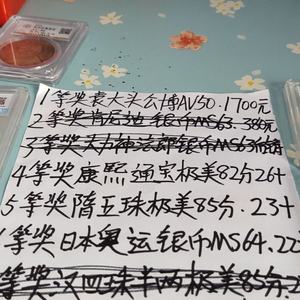 1等奖袁大头公博AV50.1700元
2等奖肯尼迪银币MS63.380元
3等奖大力神法郎银币MS63
4等奖康熙通宝极美82分26+
5等奖隋五珠极美85分.23+
等奖日本奥运银币MS64.22
等奖汉四珠半两极美85分